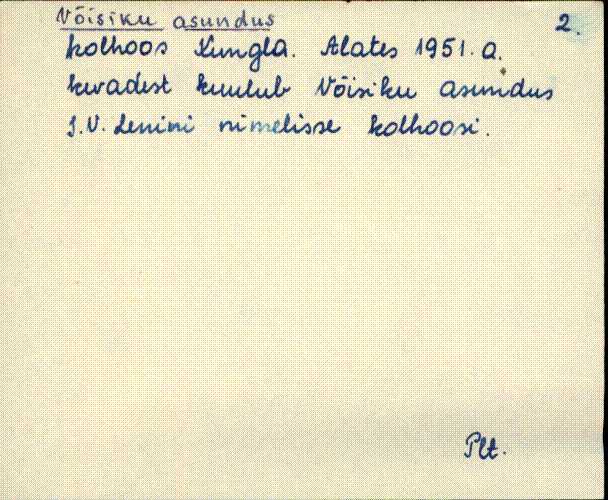 Võisiku asundus 2.
kolhoos Kungla. Alates 1951. a.
kevadest kuulub Võisiku asundus
J.V. Lenini nimelisse kolhoosi.
Plt.